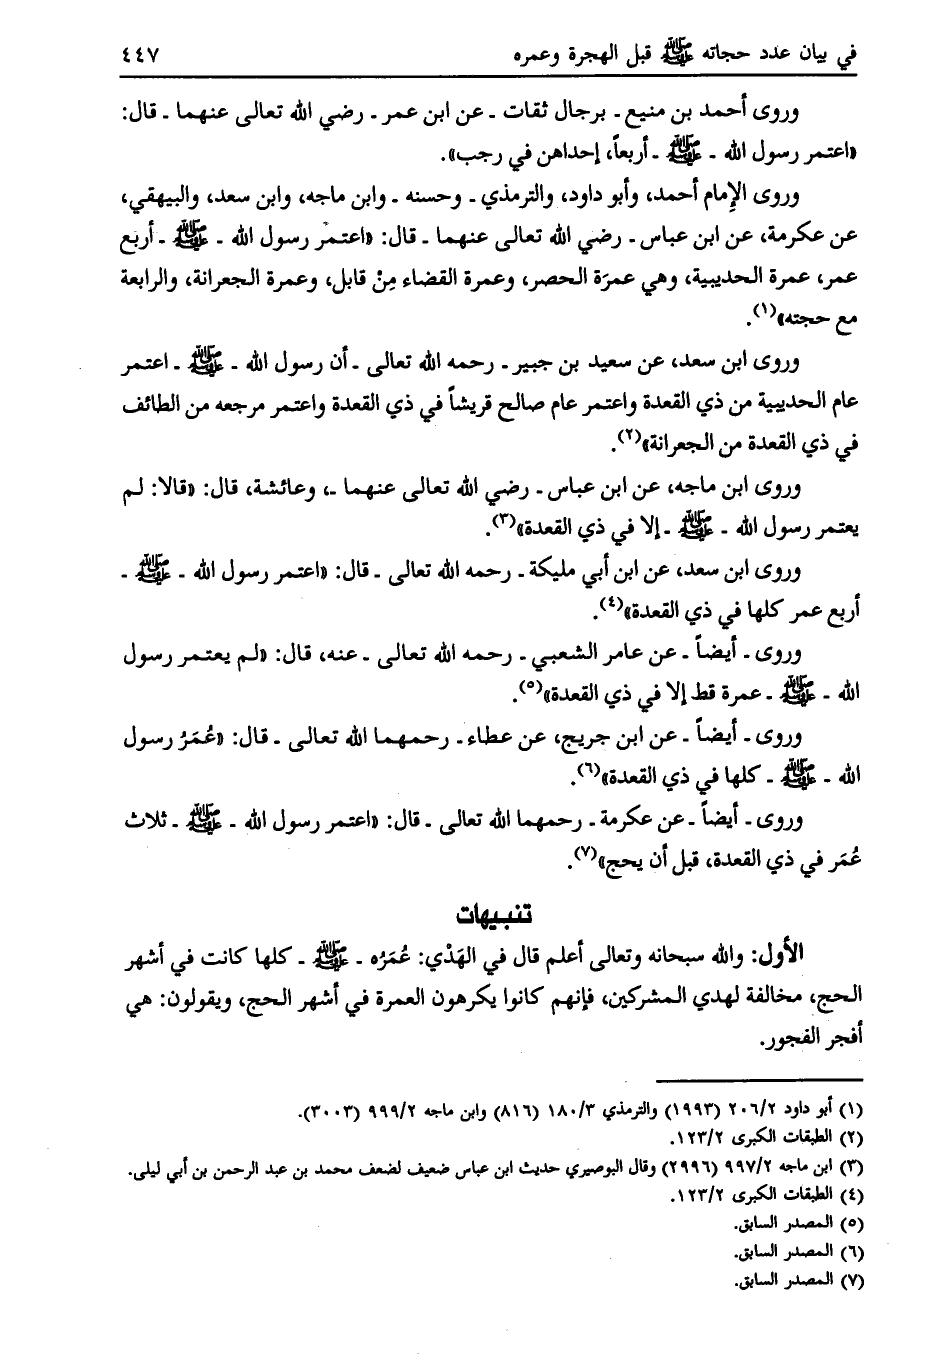 في بيان عدد حجاته ﷺ قبل الهجرة وعمره ٤٤٧
وروى أحمد بن منيع ـ برجال ثقات ـ عن ابن عمر ـ رضي الله تعالى عنهما ـ قال:
«اعتمر رسول الله ـ ﷺ ـ أربعاً، إحداهن في رجب».
وروى الإمام أحمد، وأبو داود، والترمذي ـ وحسنه ـ وابن ماجه، وابن سعد، والبيهقي،
عن عكرمة، عن ابن عباس ـ رضي الله تعالى عنهما ـ قال: «اعتمر رسول الله ـ ﷺ ـ أربع
عمر، عمرة الحديبية، وهي عمرَة الحصر، وعمرة القضاء مِنْ قابل، وعمرة الجعرانة، والرابعة
مع حجته»(١).
وروى ابن سعد، عن سعيد بن جبير ـ رحمه الله تعالى ـ أن رسول الله ـ ﷺ ـ اعتمر
عام الحديبية من ذي القعدة واعتمر عام صالح قريشاً في ذي القعدة واعتمر مرجعه من الطائف
في ذي القعدة من الجعرانة»(٢).
وروى ابن ماجه، عن ابن عباس ـ رضي الله تعالى عنهما ـ، وعائشة، قال: «قالا: لم
يعتمر رسول الله ـ ﷺ ـ إلا في ذي القعدة»(٣).
وروى ابن سعد، عن ابن أبي مليكة ـ رحمه الله تعالى ـ قال: «اعتمر رسول الله ـ ﷺ ـ
أربع عمر كلها في ذي القعدة»(٤).
وروى ـ أيضاً ـ عن عامر الشعبي ـ رحمه الله تعالى ـ عنه، قال: «لم يعتمر رسول
الله ـ ﷺ ـ عمرة قط إلا في ذي القعدة»(٥).
وروى ـ أيضاً ـ عن ابن جريج، عن عطاء ـ رحمهما الله تعالى ـ قال: «عُمَرُ رسول
الله ـ ﷺ ـ كلها في ذي القعدة»(٦).
وروى ـ أيضاً ـ عن عكرمة ـ رحمهما الله تعالى ـ قال: «اعتمر رسول الله ـ ﷺ ـ ثلاث
عُمَر في ذي القعدة، قبل أن يحج»(٧).
تنبيهات
الأول: والله سبحانه وتعالى أعلم قال في الهَدْي: عُمَرُه ـ ﷺ ـ كلها كانت في أشهر
الحج، مخالفة لهدي المشركين، فإنهم كانوا يكرهون العمرة في أشهر الحج، ويقولون: هي
أفجر الفجور.
(١) أبو داود ٢٠٦/٢ (١٩٩٣) والترمذي ١٨٠/٣ (٨١٦) وابن ماجه ٩٩٩/٢ (٣٠٠٣).
(٢) الطبقات الكبرى ١٢٣/٢.
(٣) ابن ماجه ٩٩٧/٢ (٢٩٩٦) وقال البوصيري حديث ابن عباس ضعيف لضعف محمد بن عبد الرحمن بن أبي ليلى.
(٤) الطبقات الكبرى ١٢٣/٢.
(٥) المصدر السابق.
(٦) المصدر السابق.
(٧) المصدر السابق.